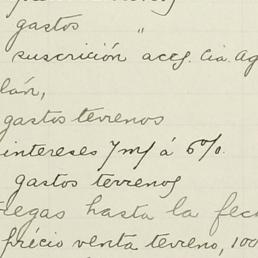 gastos "
suscrición accs. Cia. Ag
lán,
gastos terrenos
intereses 7 m/ á 6%.
gastos terrenos
regas hasta la fec
précio venta terreno, 100